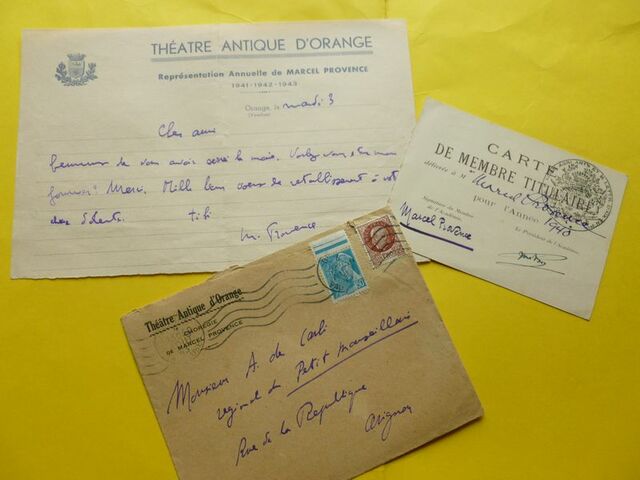 THÉATRE ANTIQUE D'ORANGE
Représentation Annuelle de MARCEL PROVENCE
1941-1942-1943
Orange, le mardi 3
(Vaucluse)
Cher ami
heureux de vous avoir serré la main. Voulez vous être mon
Merci. Mille bons vœux de rétablissement à
M. Provence
CARTE
DE MEMBRE TITULAIRE
délivrée à M Marcel Provence
pour l'Année 1943
Signature du Membre
de l'Académie,
Le Président de l'Académie,
Marcel Provence
Théâtre Antique d'Orange
CHORÉGIE
DE MARCEL PROVENCE
Monsieur A. de Carli
régional du Petit Marseillais
Rue de la République
Avignon